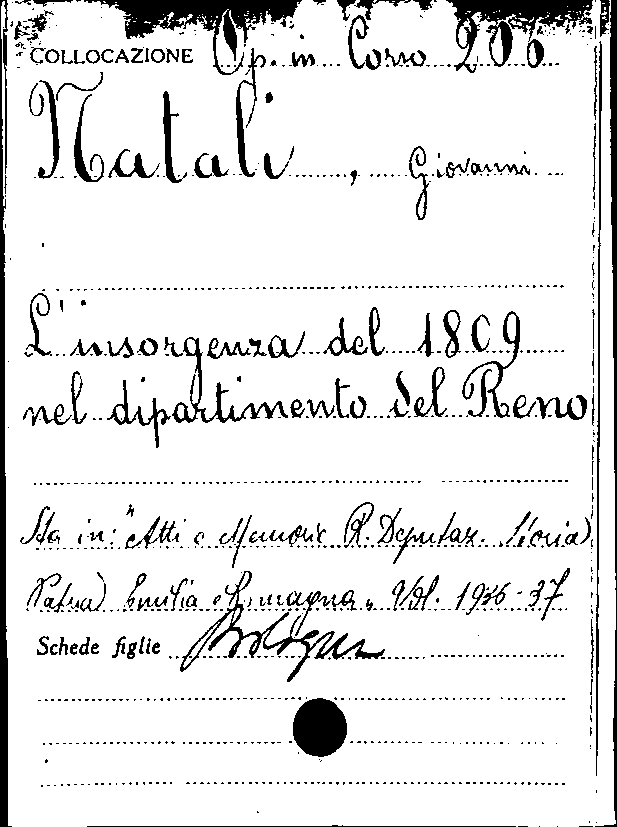 COLLOCAZIONE Op. in Corso 206
Natali, Giovanni
L'insorgenza del 1809
nel dipartimento del Reno
Sta in: "Atti e Memorie R. Deputaz. Storia
Patria Emilia e Romagna" Vol. 1936-37
Schede figlie Bologna